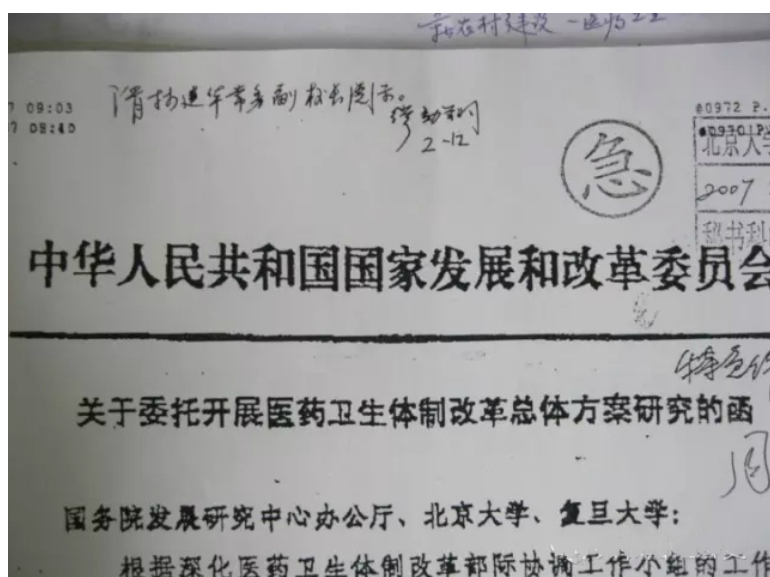 新农村建设－医归工工
09:03
09:40
请林建华常务副校长阅示。
2-12
急
0972 P.
北京大学
2007
秘书科
中华人民共和国国家发展和改革委员会
特急件
关于委托开展医药卫生体制改革总体方案研究的函
国务院发展研究中心办公厅、北京大学、复旦大学：
根据深化医药卫生体制改革部际协调工作小组的工作